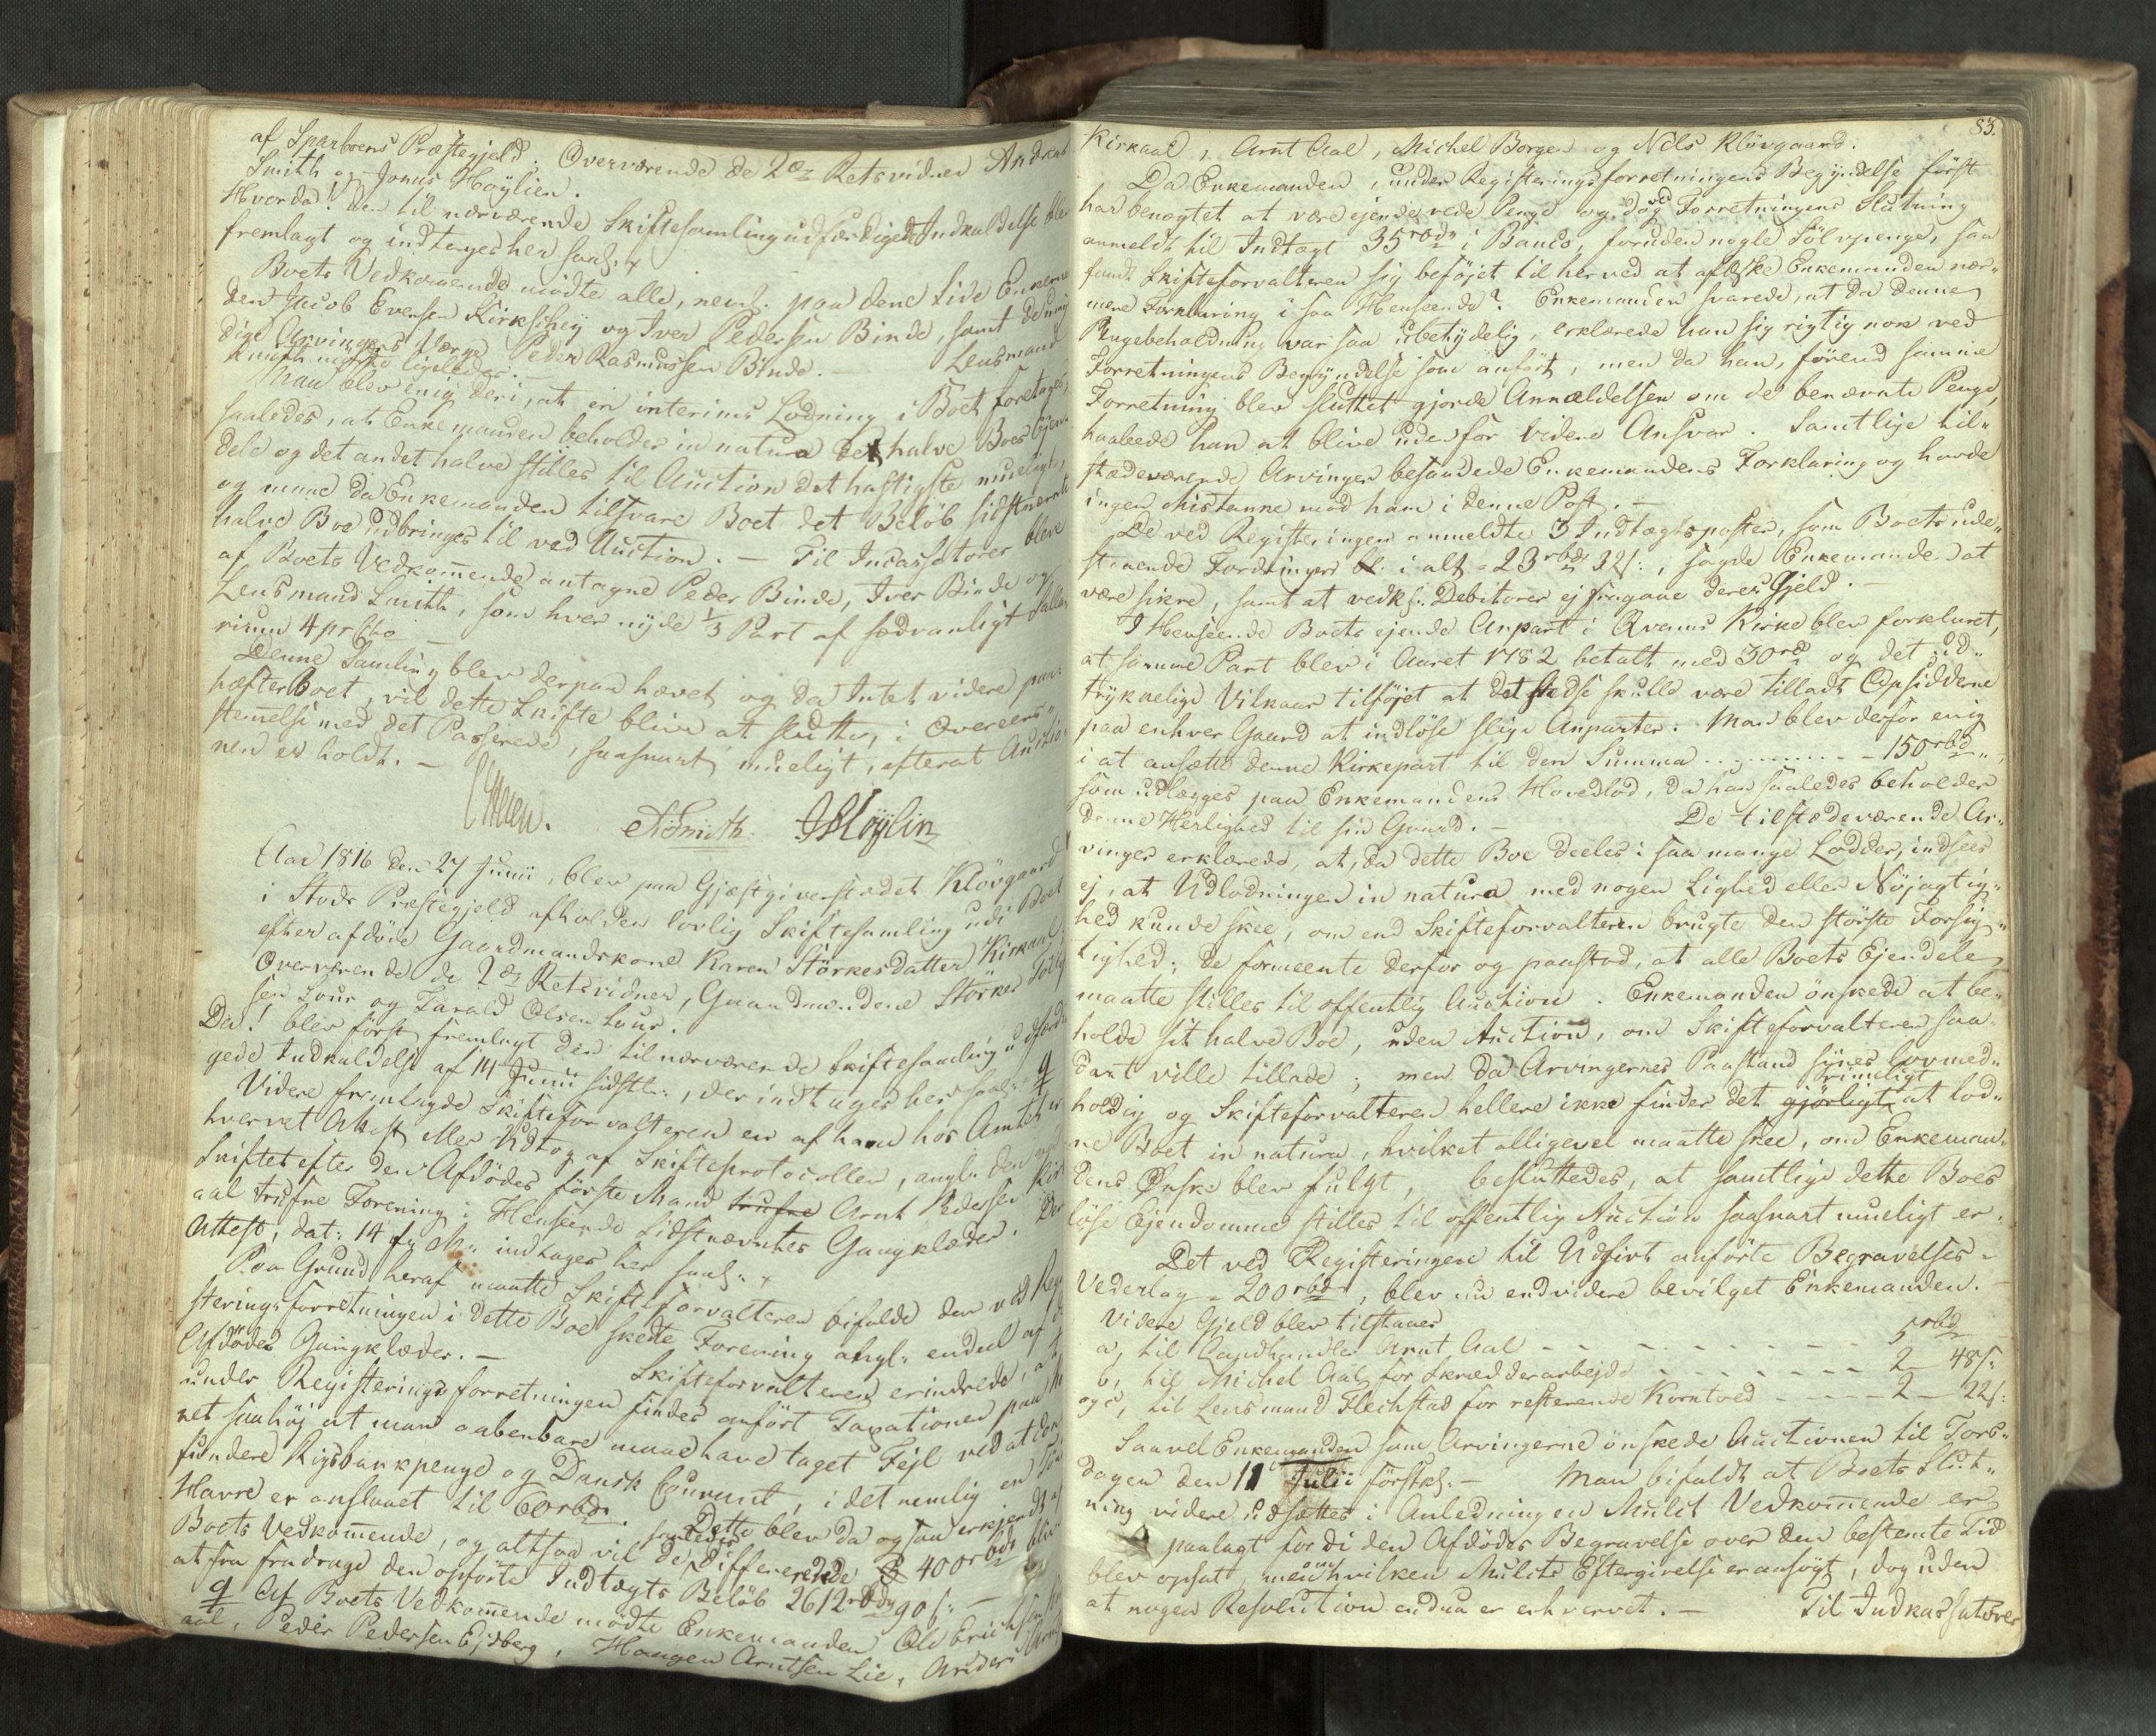 af Sparboens Præstegjeld. Overværende de 2de Retsvidner Andreas
Smith og Jonus Høylien.
Hvorda! den til nærværende Skiftesamling udfærdigede Indkaldelse blev
fremlagt og indtages her saal:
Boets Vedkommende mødte alle, neml: paa denne Tide Enkeman
den Jacob Evensen Kirkschey og Iver Pedersen Binde, samt de umyn
dige Arvingers Værge Peder Rasmussen Binde. — Lensmand
Smith mødte ligeledes. —
Man blev enig deri, at en interims Lodning i Boet foretages,
saaledes, at Enkemanden beholder in natura det halve Boes Ejen
dele og det andet halve stilles til Auction det hastigste mueligt,
og maae da Enkemanden tilsvare Boet det Beløb sidstnævnte
halve Boe udbringes til ved Auction. — Til Incassatorer bleve
af Boets Vedkommende antagne Peder Binde, Iver Binde og
Lensmand Smith, som hver nyde 1/3 Part af sædvanligt Salla
rium 4 pr Cto
Denne Samling blev derpaa hævet og da Intet videre paa
hæfter Boet, vil dette Skifte blive at slutte, i Overeens„
stemmelse med det Passerede, saasnart mueligt, efterat Auctio
nen er holdt. —
ASmith JHöylin
Aar 1816 den 27 Junii, blev paa Gjæstgiverstædet Klövgaard
i Stods Præstegjeld afholden lovlig Skiftesamling udi Boet
efter afdøde Gaardmandskone Karen Störkersdatter Kirkaal
Overværende de 2de Retsvidner, Gaardmændene Störker
sen Four og Tarald Olsen Four.
Da! blev först fremlagt den til nærværende Skiftesamling udfærdi
gede Indkaldelse af 14 Junii sidstl:, der indtages her saal:
Videre fremlagde Skifteforvalteren en af ham hos Amtet er
hvervet Attest eller Udtog af Skifteprotocollen, angl: den ved
Skiftet efter den Afdødes förste Mand trufne Arnt Pedersen Kirk
aal trufne Forening i Henseende Sidstnævntes Gangklæder. Den
Attest, dat: 14 hj M: indtages her saal:
Paa Grund heraf maatte Skifteforvalteren bifalde den ved Regi
steringsforretningen i dette Boe skedte Forening angl: endeel af d:
Afdødes Gangklæder. — Skifteforvalteren erindrede, at
under Registeringsforretningen findes anført Taxationen paa
net saa høj at man aabenbare maae have taget Fejl ved at con
fundere Rigsbankpenge og Dansk Courant, i det nemlig en
Havre er anslaaet til 60 rbd. Dette blev da ogsaa erkjendt af
Boets Vedkommende, og altsaa vil de saaledes differerende 400 rbd blive
at fra fradrage den opførte Indtægts Beløb 2612 rbd 90 s: —
Af Boets Vedkommende mødte Enkemanden Ole Erichsen
aal, Peder Pedersen Ejdberg, Haagen Arntsen Lie, Anders
83.
Kirkaal, Arnt Aal, Michel Borgen og Nils Klövgaard.
Da Enkemanden, under Registeringsforretningens Begyndelse först
har benægtet at være ejende rede Penge og dog ved Forretningens Slutning
anmeldt til Indtægt 35 rbdr i Banco, foruden nogle Sölvpenge, saa
fandt Skifteforvalteren sig beföjet til herved at afæske Enkemanden nær„
mere Forklaring i saa Henseende? Enkemanden svarede, at da denne
Pengebeholdning var saa ubetydelig, erklærede han sig rigtig nok ved
Forretningens Begyndelse som anført, men da han, förend samme
Forretning blev sluttet gjorde Anmældelsen om de benævnte Penge,
haabede han at blive udenfor videre Ansvar. Samtlige til„
stædeværende Arvinger besandede Enkemandens Forklaring og havde
ingen Mistanke mod ham i denne Post. —
De ved Registeringen anmeldte 3 Indtægtsposter, som Boets ude„
staaende Fordringer bl: i alt = 23 rbdr 32 s:, sagde Enkemanden at
være sikre, samt at vedk: Debitorer ej fragaae deres Gjeld. —
I Henseende Boets ejende Anpart i Qvams Kirke blev forklaret,
at samme Part blev i Aaret 1782 betalt med 30 rd og det ud„
trykkelige Vilkaar tilføjet at det stedse skulle være tilladt Opsidderne
paa enhver Gaard at indløse slige Anparter. Man blev derfor enig
i at ansætte denne Kirkepart til den Summa ........... - 150 rbd „
som udlægges paa Enkemandens Hovedlod, da han saaledes beholder
denne Herlighed til sin Gaard. — De tilstædeværende Ar„
vinger erklærede, at, da dette Boe deeles i saa mange Lodder, indsees
ej, at Udlodningen in natura med nogen Lighed eller Nøjagtig„
hed kunde skee, om end Skifteforvalteren brugte den største Forsig„
tighed; de formeente derfor og paastod, at alle Boets Ejendele
maatte stilles til offentlig Auction. Enkemanden ønskede at be„
holde sit halve Boe, uden Auction, om Skifteforvalteren saa„
dant ville tillade; men da Arvingernes Paastand synes lovmed„
holdig og Skifteforvalteren hellere ikke finder det gjørligt rimeligt at lod„
ne Boet in natura, hvilket alligevel maatte skee, om Enkeman„
dens Ønske blev fulgt, besluttedes, at samtlige dette Boes
løse Ejendomme stilles til offentlig Auction saasnart mueligt er.
Det ved Registeringen til Udgivt anförte Begravelses=
Vederlag = 200 rbdr, blev nu endvidere bevilget Enkemanden. —
Videre Gjeld blev tilstaaet
a, til Landhandler Arnt Aal - - - - - - - - 5 rbd
b, til Michel Aal for Skrædderarbejde - - - - - - - 2 — 48 s:
og c, til Lensmand Flechstad for resterende Korntold - - - - 2 — 22 s:
Saavel Enkemanden som Arvingerne önskede Auctionen til Tors„
dagen den 11 Julii förstk: — Man bifaldt at Boets Slut„
ning videre udsættes i Anledning en Mulct Vedkommende er
paalagt fordi den Afdødes Begravelse over den bestemte Tid
blev opsat, men om hvilken Mulcts Eftergivelse er ansøgt, dog uden
at nogen Resolution endnu er erhvervet. — Til Indkassatorer